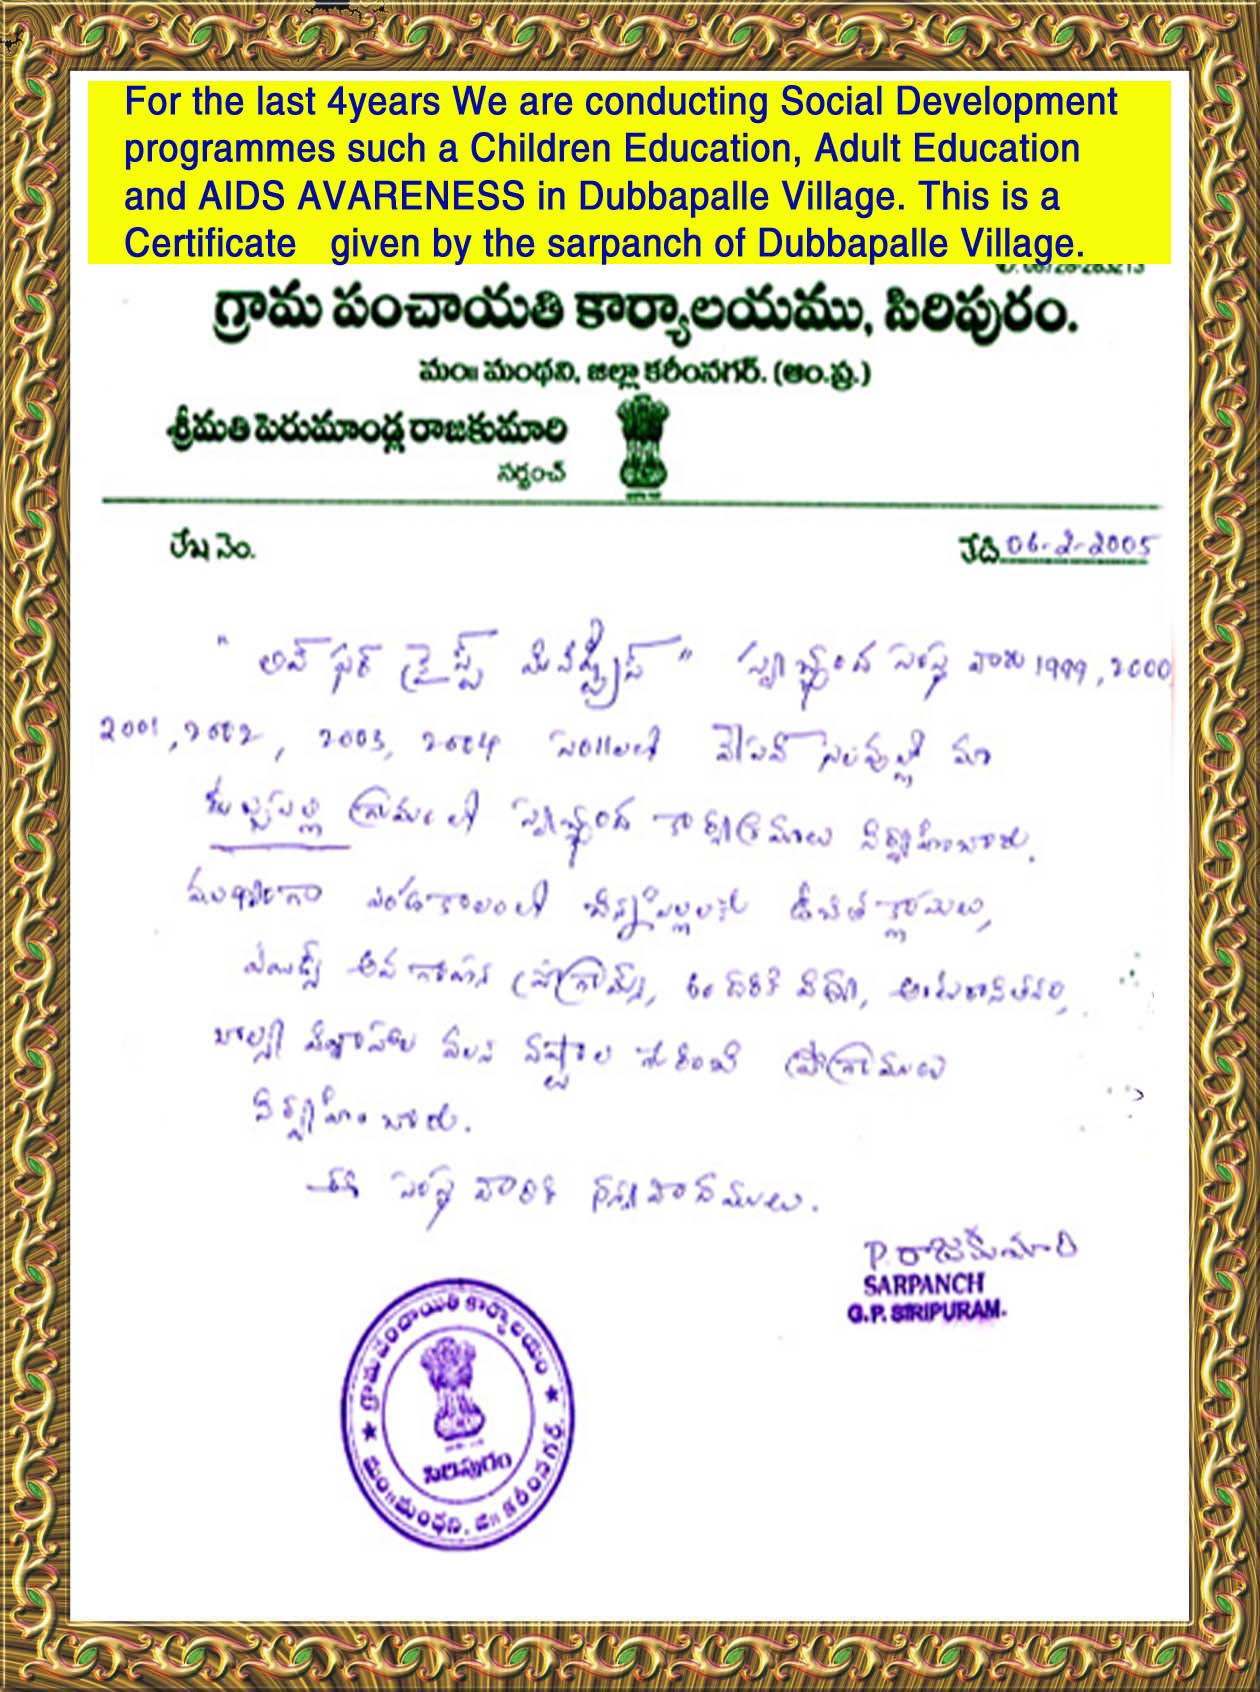 For the last 4years We are conducting Social Development
programmes such a Children Education, Adult Education
and AIDS AVARENESS in Dubbapalle Village. This is a
Certificate given by the sarpanch of Dubbapalle Village.
గ్రామ పంచాయతి కార్యాలయము, సిరిపురం.
మం॥ మంథని, జిల్లా కరీంనగర్. (ఆం.ప్ర.)
శ్రీమతి పెరుమాండ్ల రాజకుమారి
సర్పంచ్
లేఖ నెం.
తేది 06-2-2005
" లివ్ ఫర్ క్రైస్ట్ మినిస్ట్రీస్ " స్వచ్ఛంద సంస్థ వారు 1999, 2000,
2001, 2002, 2003, 2004 సం॥లలో వేసవి సెలవుల్లో మా
గ్రామంలో స్వచ్ఛంద కార్యక్రమాలు నిర్వహించారు.
ముఖ్యంగా ఎండకాలంలో చిన్నపిల్లలకు ఉచిత క్లాసులు,
ఎయిడ్స్ అవగాహన ప్రోగ్రామ్స్, అందరికి విద్య, అంటురానితనం,
బాల్య వివాహాల వలన నష్టాల గురించి ప్రోగ్రాములు
నిర్వహించారు.
ఈ సంస్థ వారికి ధన్యవాదములు.
P. రాజకుమారి
SARPANCH
G.P. SIRIPURAM.
గ్రామ పంచాయితీ కార్యాలయం
సిరిపురం
మం॥ మంథని, జి॥ కరీంనగర్.